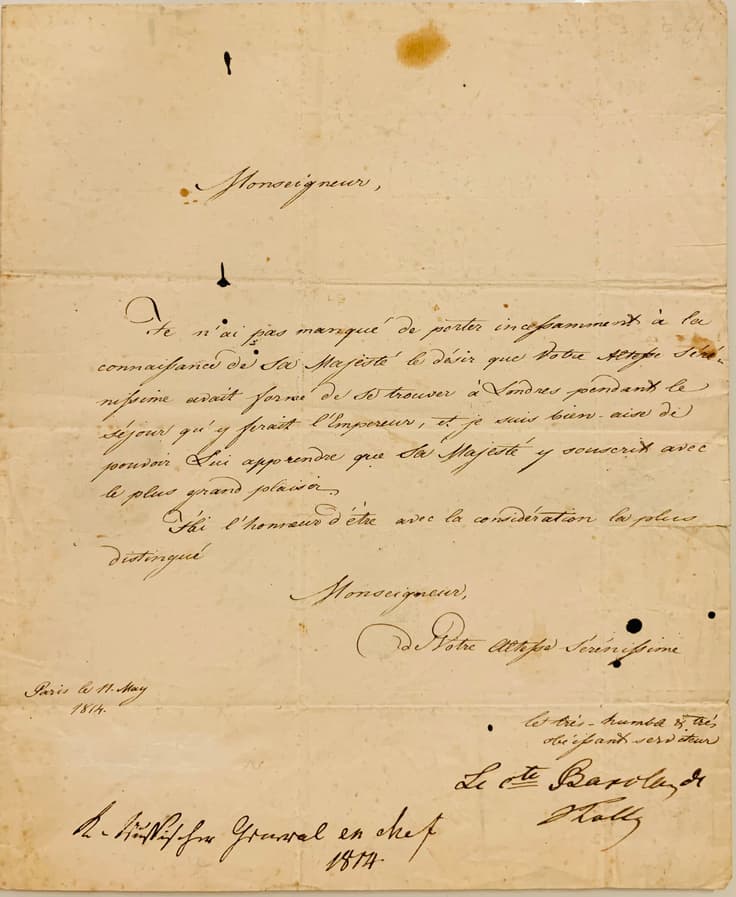 Monseigneur,
Je n'ai pas manqué de porter incessamment à la
connaissance de Sa Majesté le désir que Votre Altesse Séré-
nissime avait formé de se trouver à Londres pendant le
séjour qu'y ferait l'Empereur, et je suis bien-aise de
pouvoir Lui apprendre que Sa Majesté y souscrit avec
le plus grand plaisir.
J'ai l'honneur d'être avec la considération la plus
distingué
Monseigneur,
de Votre Altesse Sérénissime
Paris le 11. May
1814.
le très-humble & très
obéissant serviteur
Le cte Barclay de
Tolly
K. Russischer General en chef
1814.